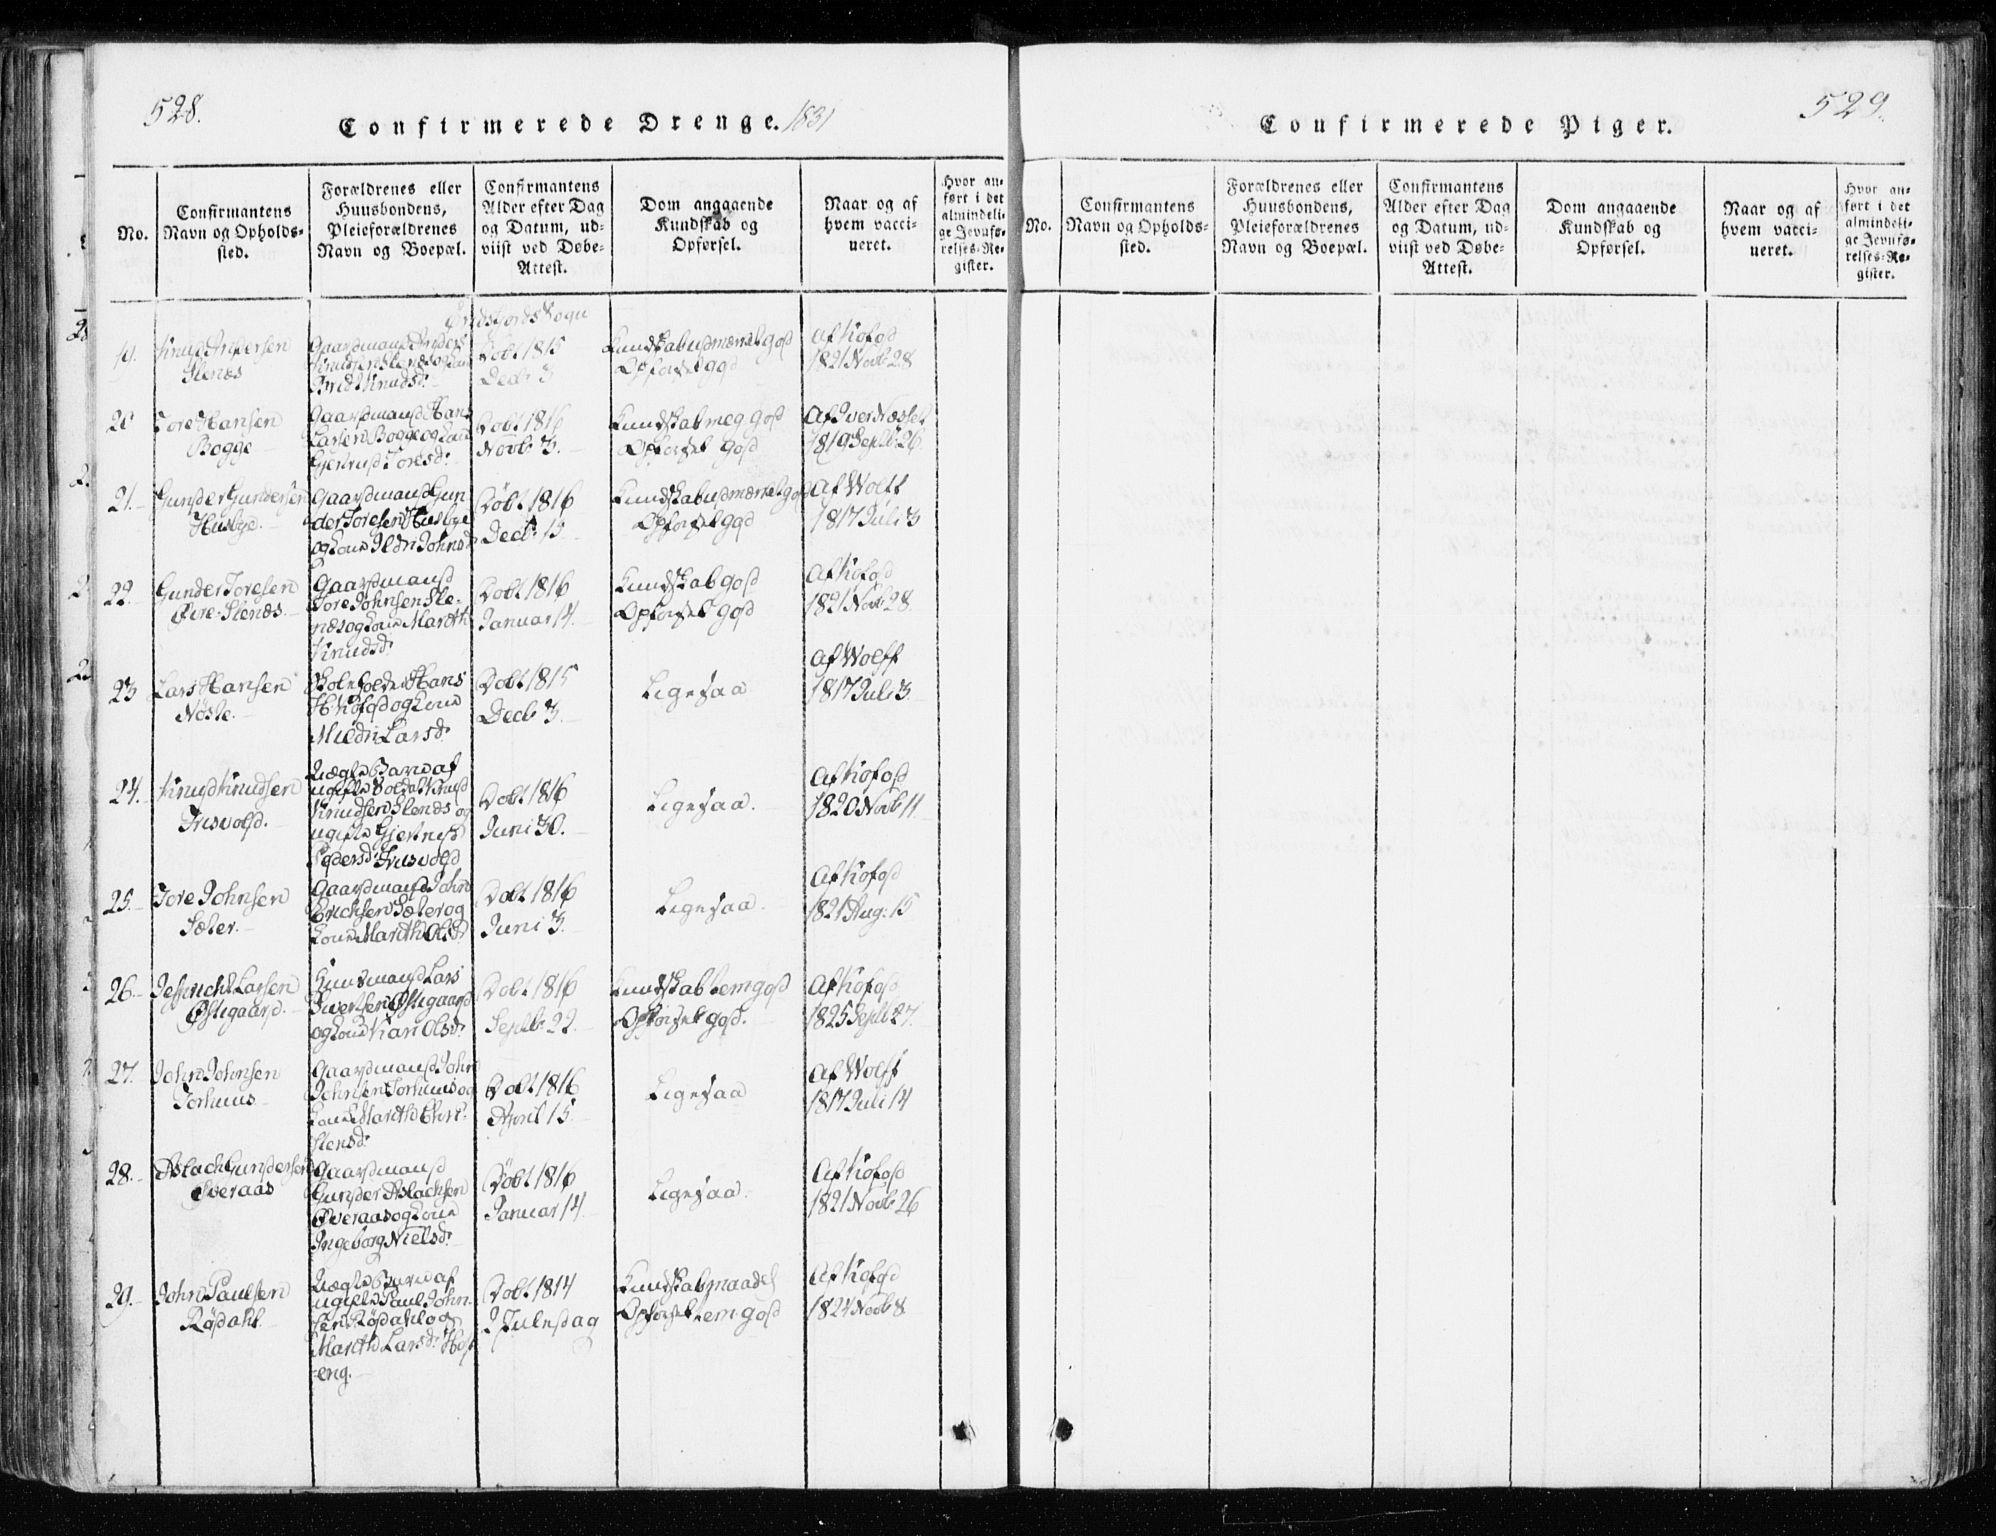 528.
Confirmerede Drenge. 1831
No.
Confirmantens
Navn og Opholds-
sted.
Forældrenes eller
Huusbondens,
Pleieforældrenes
Navn og Boepæl.
Confirmantens
Alder efter Dag
og Datum, ud-
viist ved Døbe-
Attest.
Dom angaaende
Kundskab og
Opførsel.
Naar og af
hvem vacci-
neret.
Hvor an-
ført i det
almindeli-
ge Jevnfø-
relses-Re-
gister.
Sogn
19.
Knud Andersen
Slenæs
Gaardmand Anders
Knudsen Slenæs og Kone
Knudsd.
Døbt 1815
Decb. 3
god
Opførsel god
Af Kofod
1821 Novb. 28
20
Tore Hansen
Bogge
Gaardmand Hans
Larsen Bogge og Kone
Gjertrud Toresd.
Døbt 1816
Novb. 3.
Kundskab meg god
Opførsel god
Af Iver Næsset
1819 Septb. 26
21.
Gunder Gundersen
Husbye.
Gaardmand Gun
der Toresen Husbye
og Kone Ildri Johnsd
Døbt 1816
Decb. 15
god
Opførsel god
Af Wolff
1817 Juli 3
22.
Gunder Toresen
Øvre-Slenæs.
Gaardmand
Tore Johnsen Sle-
næs og Kone Marith
Knudsd.
Døbt 1816
Januar 14.
Kundskab god
Opførsel god
Af Kofod
1821 Novb. 28.
23
Lars Hansen
Nøste.
Skoleholder Hans
og Kone
Mildri Larsd.
Døbt 1815
Decb. 3.
Ligesaa
Af Wolff
1817 Juli 3.
24.
Knud Knudsen
Trisvold.
Uægte Barn af
ugifte Knud
Knudsen Slenæs og
ugifte Gjertrud
Pedersd. Trisvold
Døbt 1816
Juni 30.
Ligesaa.
Af Kofod
1820 Novb. 11
25.
Tore Johnsen
Sæter.
Gaardmand John
Erichsen Sæter og
Kone Marith Olsd.
Døbt 1816
Juni 3.
Ligesaa.
Af Kofod
1821 Aug: 15
26.
Larsen
Østigaard.
Huusmand Lars
Iversen Østigaard
og Kone Kari Olsd.
Døbt 1816
Septb. 22.
Kundskab temgod
Opførsel god.
Af Kofod
1825 Septb. 27.
27.
John Johnsen
Torhuus
Gaardmand John
Johnsen Torhuus og
Kone Marith Chri-
stensd.
Døbt 1816
April 15.
Ligesaa
Af Wolff
1817 Juli 14
28.
Aslach Gundersen
Øveraas
Gaardmand
Gunder Aslachsen
Øveraas og Kone
Ingeborg Nielsd.
Døbt 1816
Januar 14.
Ligesaa.
Af Kofod
1821 Novb. 26
29.
John Paulsen
Rødahl.
Uægte Barn af
ugifte Paul John-
sen Rødahl og
Marith Larsd.
-eng.
Døbt 1814
2 Juledag
Kundskab maadel
Opførsel temgod
Af Kofod
1824 Novb 8
529.
Confirmerede Piger.
No.
Confirmantens
Navn og Opholds-
sted.
Forældrenes eller
Huusbondens,
Pleieforældrenes
Navn og Boepæl.
Confirmantens
Alder efter Dag
og Datum, ud-
viist ved Døbe-
Attest.
Dom angaaende
Kundskab og
Opførsel.
Naar og af
hvem vacci-
neret.
Hvor an-
ført i det
almindeli-
ge Jevnfø-
relses-Re-
gister.